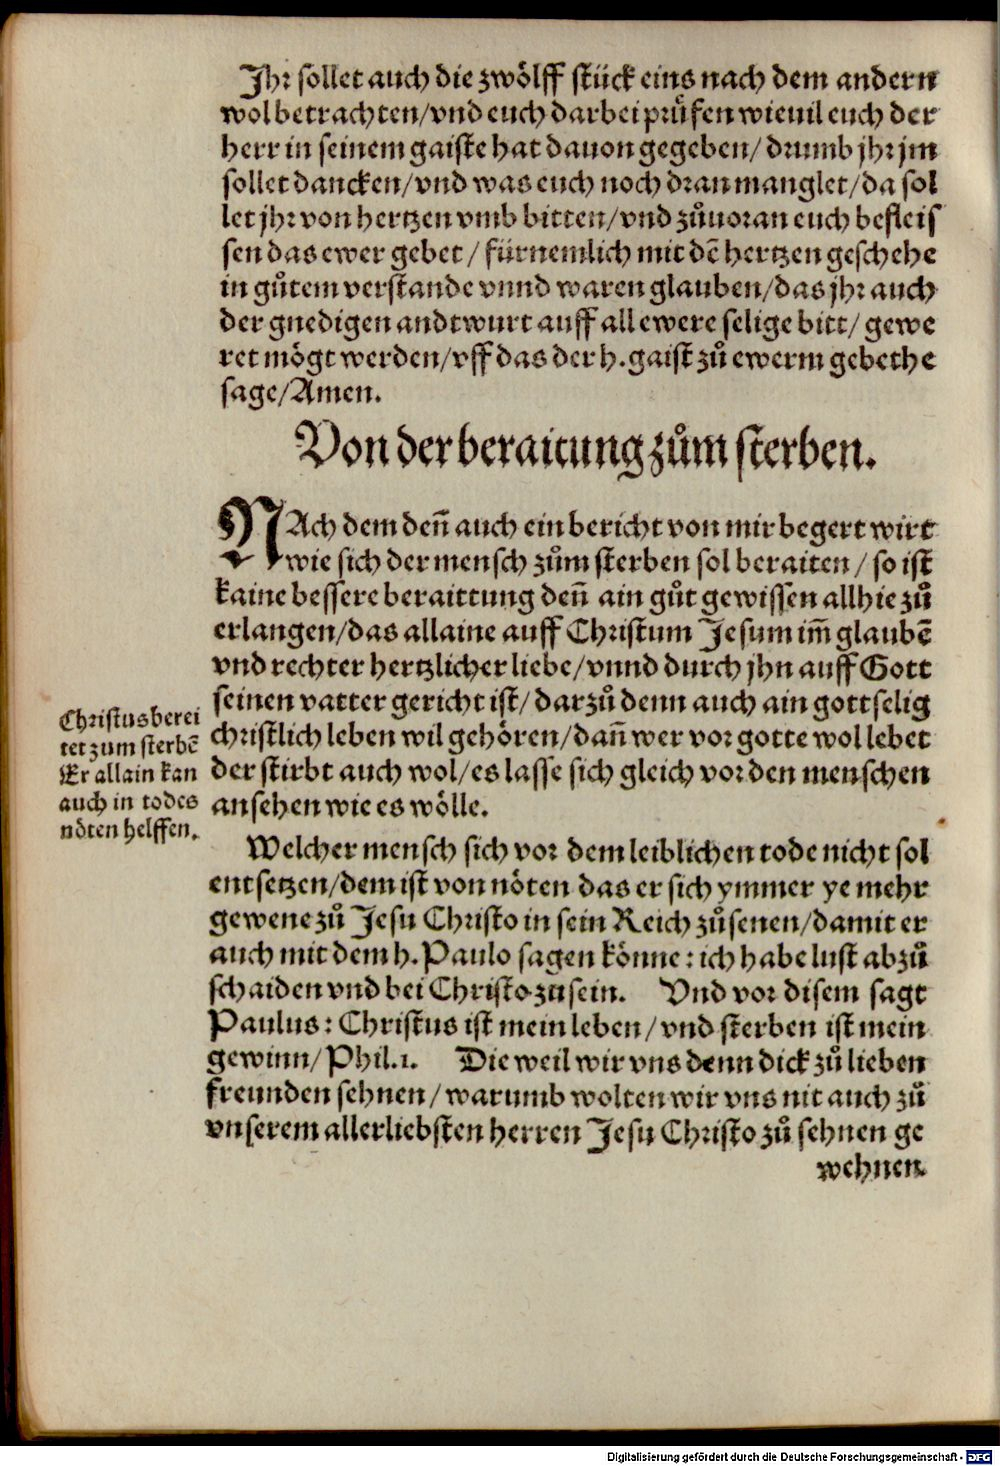 Jhr sollet auch die zwölff stück eins nach dem andern
wol betrachten/vnd euch darbei prüfen wieuil euch der
herr in seinem gaiste hat dauon gegeben/ drumb jhr jm
sollet dancken/vnd was euch noch dran manglet/da sol
let jhr von hertzen vmb bitten/vnd zůuoran euch befleis
sen das ewer gebet/ fürnemlich mit dē hertzen geschehe
in gůtem verstande vnnd waren glauben/das jhr auch
der gnedigen andtwurt auff all ewere selige bitt/ gewe
ret mögt werden/vff das der h. gaist zů ewerm gebethe
sage/Amen.
Von der beraitung zům sterben.
NAch dem den̄ auch ein bericht von mir begert wirt
wie sich der mensch zům sterben sol beraiten/ so ist
kaine bessere beraittung den̄ ain gůt gewissen allhie zů
erlangen/das allaine auff Christum Jesum im̄ glaubē
vnd rechter hertzlicher liebe/vnnd durch jhn auff Gott
seinen vatter gericht ist/ darzů denn auch ain gottselig
christlich leben wil gehören/dan̄ wer vor gotte wol lebet
der stirbt auch wol/es lasse sich gleich vor den menschen
ansehen wie es wölle.
Christus berei
tet zum sterbē
Er allain kan
auch in todes
nöten helffen.
Welcher mensch sich vor dem leiblichen tode nicht sol
entsetzen/dem ist von nöten das er sich ymmer ye mehr
gewene zů Jesu Christo in sein Reich zů senen/damit er
auch mit dem h. Paulo sagen könne: ich habe lust abzů
schaiden vnd bei Christo zu sein. Vnd vor disem sagt
Paulus: Christus ist mein leben/vnd sterben ist mein
gewinn/Phil.1. Die weil wir vns denn dick zů lieben
freunden sehnen/warumb wolten wir vns nit auch zů
vnserem allerliebsten herren Jesu Christo zů sehnen ge
wehnen.
Digitalisierung gefördert durch die Deutsche Forschungsgemeinschaft - DFG